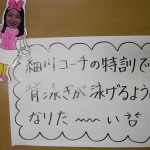 細川コーチの特訓で
背泳ぎが泳げるように
なりた〜〜い